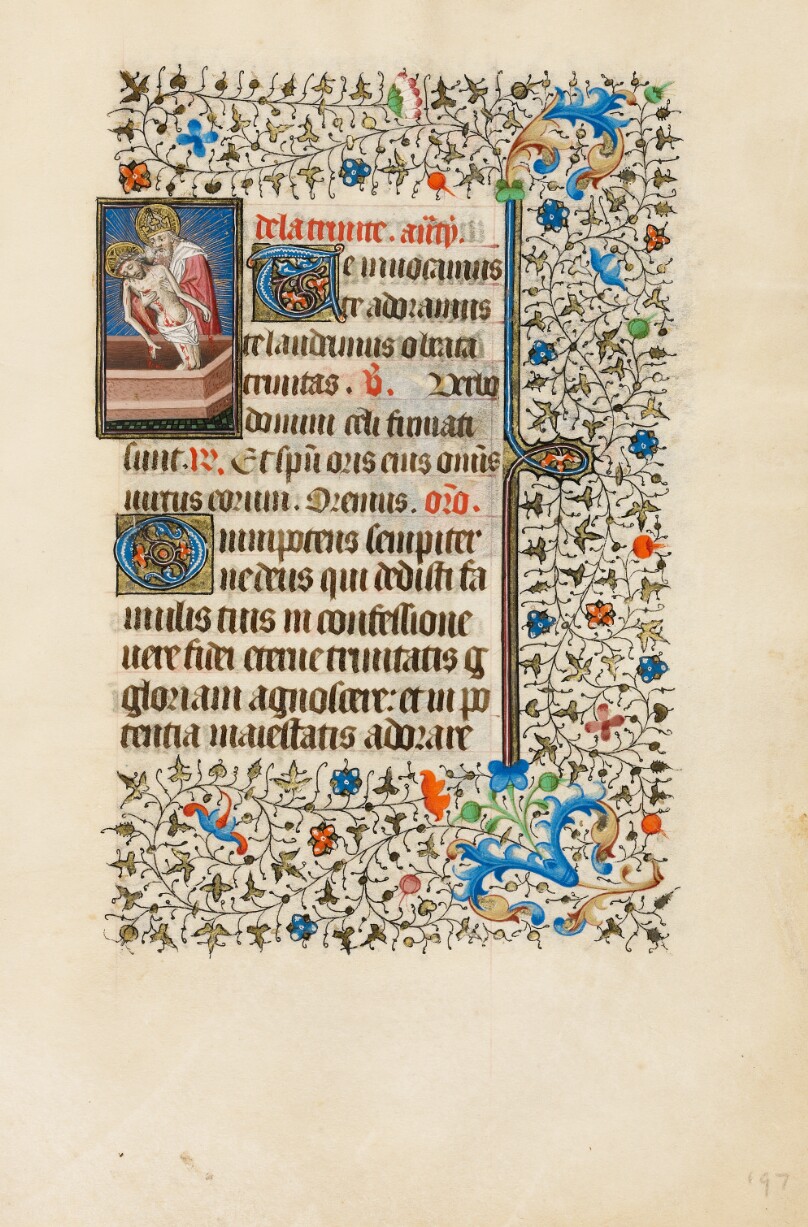 de la trinite. ant̄.
Te inuocamus
te adoramus
te laudamus o beata
trinitas. ℣. Verbo
domini celi firmati
sunt. ℟. Et sp̄u oris eius om̄is
uirtus eorum. Oremus. or̄o.
Omnipotens sempiter
ne deus qui dedisti fa
mulis tuis in confessione
uere fidei eterne trinitatis g
gloriam agnoscere: et in po
tentia maiestatis adorare
197